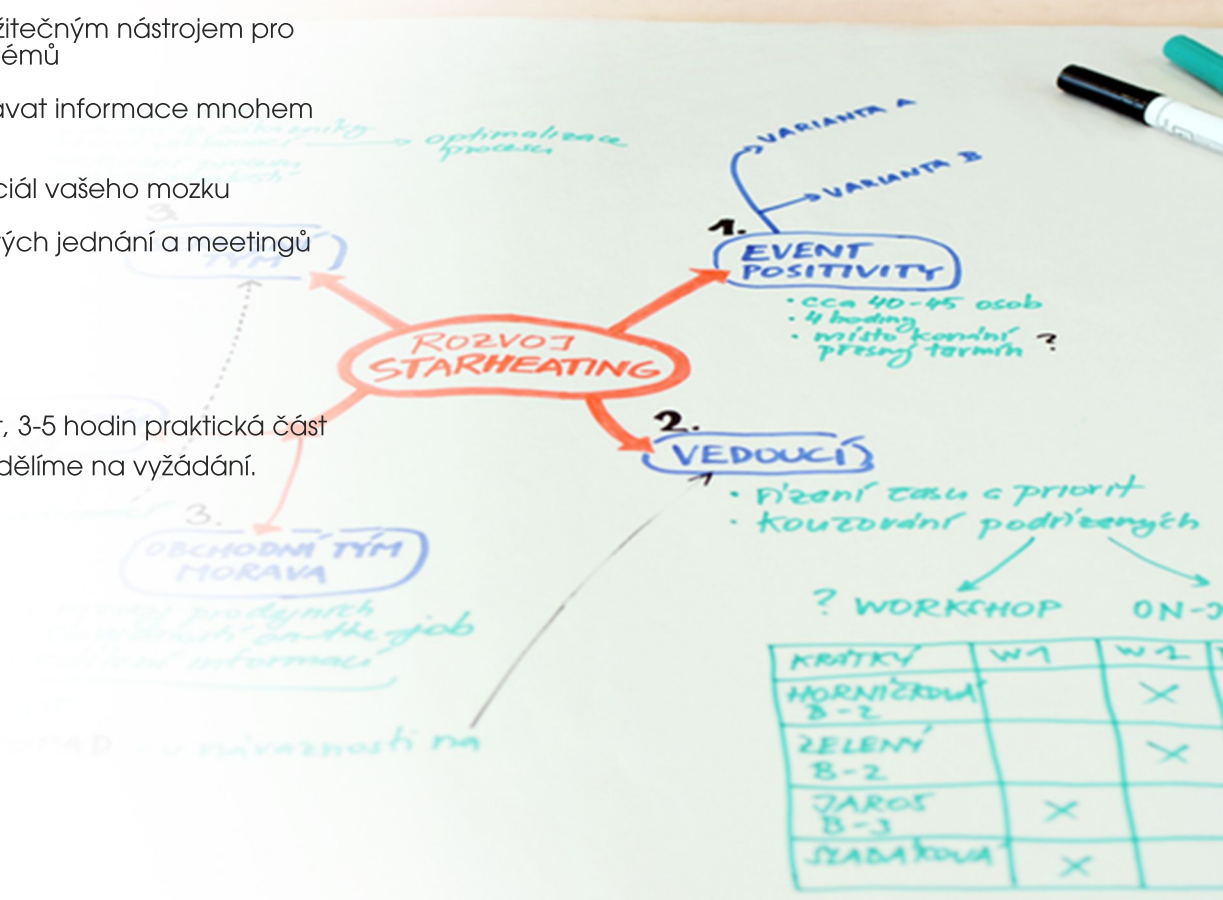 žitečným nástrojem pro
émů
avat informace mnohem
ciál vašeho mozku
ých jednání a meetingů
, 3-5 hodin praktická část
dělíme na vyžádání.
optimalizace
procesu
3.
TÝM
ROZVOJ
STARHEATING
VARIANTA A
VARIANTA B
1.
EVENT
POSITIVITY
• cca 40-45 osob
• 4 hodiny
• místo konání
přesný termín
?
2.
VEDOUCÍ
• řízení času a priorit
• koučování podřízených
? WORKSHOP
ON-J
3.
OBCHODNÍ TÝM
MORAVA
prodejních
on-the-job
informací
v návaznosti na
KRÁTKÝ W1 W2
HORNÍČKOVÁ X
B-2
ZELENÝ X
B-2
JAROŠ X
B-3
X